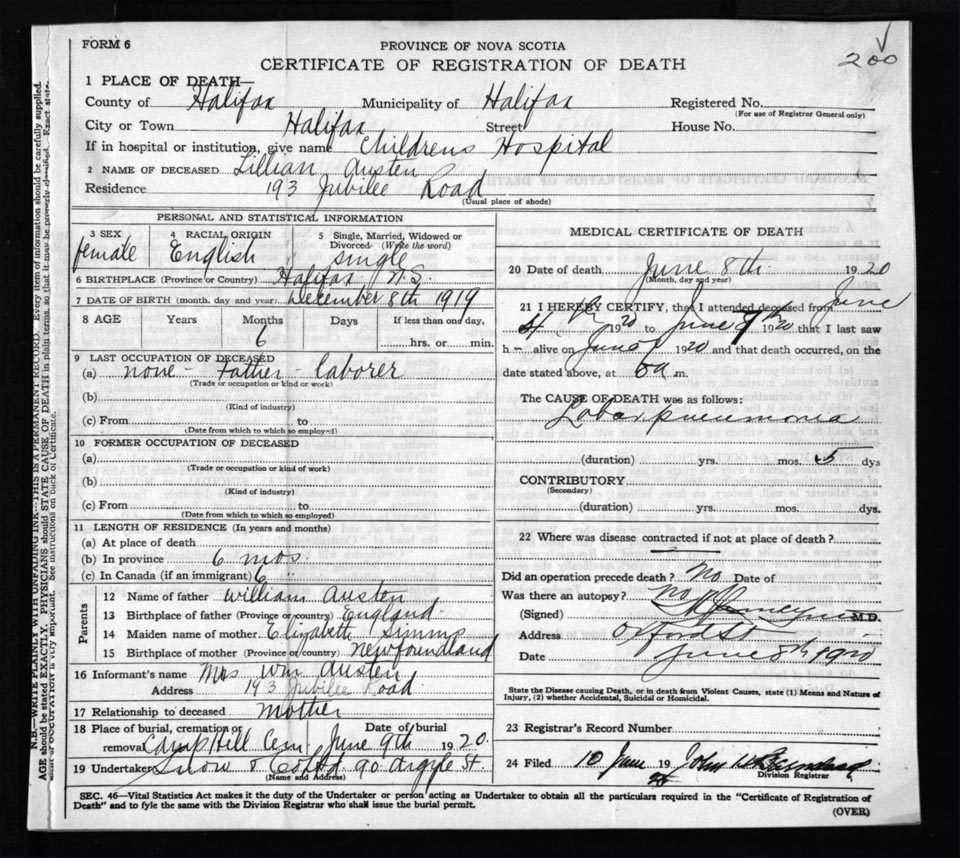 FORM 6
PROVINCE OF NOVA SCOTIA
CERTIFICATE OF REGISTRATION OF DEATH
200
1 PLACE OF DEATH—
County of Halifax Municipality of Halifax Registered No.
(For use of Registrar General only)
City or Town Halifax Street House No.
If in hospital or institution, give name Childrens Hospital
2 NAME OF DECEASED Lillian Austen
Residence 193 Jubilee Road
(Usual place of abode)
PERSONAL AND STATISTICAL INFORMATION
3 SEX 4 RACIAL ORIGIN 5 Single, Married, Widowed or Divorced. (Write the word)
female English single
6 BIRTHPLACE (Province or Country) Halifax N.S.
7 DATE OF BIRTH (month, day and year) December 8th 1919
8 AGE Years Months Days If less than one day,
6 hrs. or min.
9 LAST OCCUPATION OF DECEASED
(a) none - Father - laborer
(Trade or occupation or kind or work)
(b)
(Kind of industry)
(c) From to
(Date from which to which so employed)
10 FORMER OCCUPATION OF DECEASED
(a)
(Trade or occupation or kind of work)
(b)
(Kind of industry)
(c) From to
(Date from which to which so employed)
11 LENGTH OF RESIDENCE (In years and months)
(a) At place of death
(b) In province 6 mos.
(c) In Canada (if an immigrant) 6 "
Parents
12 Name of father William Austen
13 Birthplace of father (Province or country) England
14 Maiden name of mother Elizabeth Simms
15 Birthplace of mother (Province or country) Newfoundland
16 Informant's name Mrs Wm Austen
Address 193 Jubilee Road
17 Relationship to deceased Mother
18 Place of burial, cremation or removal Camp Hill Cem Date of burial June 9th 1920.
19 Undertaker Snow & Co Ltd 90 Argyle St.
(Name and Address)
MEDICAL CERTIFICATE OF DEATH
20 Date of death June 8th 1920
(Month, day and year)
21 I HEREBY CERTIFY, that I attended deceased from June
4 1920 to June 1920 that I last saw
h— alive on June 1920 and that death occurred, on the
date stated above, at 6a m.
The CAUSE OF DEATH was as follows:
Lobar pneumonia
(duration) yrs. mos. 5 dys
CONTRIBUTORY
(Secondary)
(duration) yrs. mos. dys.
22 Where was disease contracted if not at place of death?
Did an operation precede death? No Date of
Was there an autopsy? No
(Signed) M.D.
Address Oxford St
Date June 8th 1920
State the Disease causing Death, or in death from Violent Causes, state (1) Means and Nature of
Injury, (2) whether Accidental, Suicidal or Homicidal.
23 Registrar's Record Number
24 Filed 10 June 19 20 John
Division Registrar
SEC. 46—Vital Statistics Act makes it the duty of the Undertaker or person acting as Undertaker to obtain all the particulars required in the "Certificate of Registration of
Death" and to fyle the same with the Division Registrar who shall issue the burial permit.
(OVER)
N.B.—WRITE PLAINLY WITH UNFADING INK—THIS IS A PERMANENT RECORD. Every item of information should be carefully supplied.
AGE should be stated EXACTLY. PHYSICIANS should STATE CAUSE OF DEATH in plain terms, so that it may be properly classified. Exact state-
ment of OCCUPATION is very important. See instructions on back of Certificate.